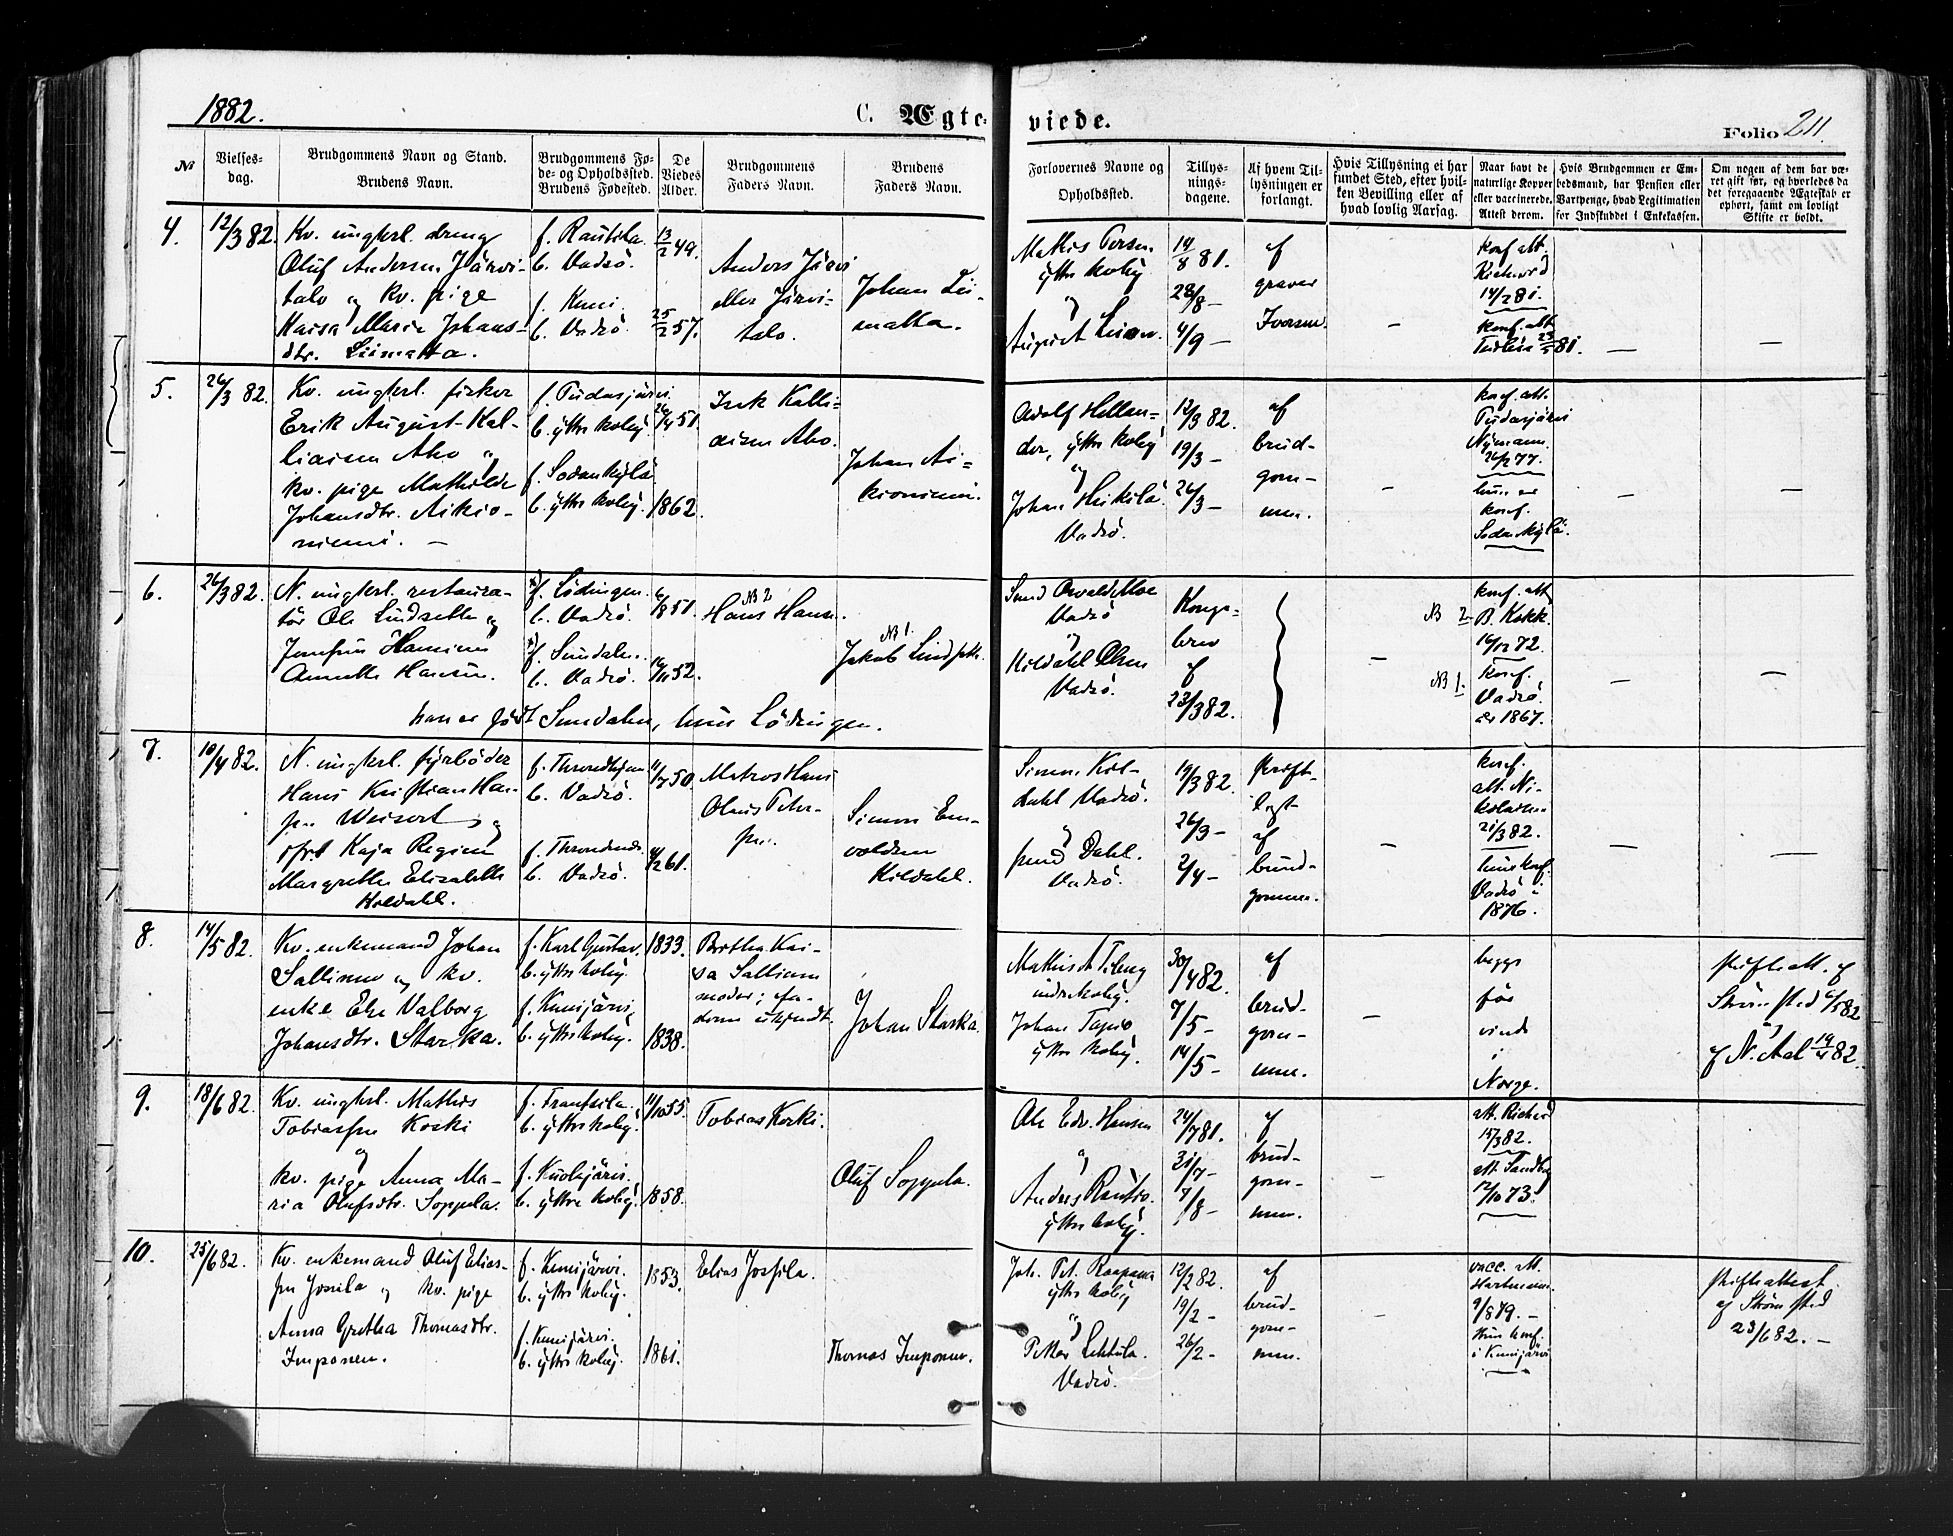 1882.
C. Ægte-
viede.
Folio 211.
№
Vielses-
dag.
Brudgommens Navn og Stand.
Brudens Navn.
Brudgommens Fø-
de- og Opholdssted.
Brudens Fødested.
De
Viedes
Alder.
Brudgommens
Faders Navn.
Brudens
Faders Navn.
Forlovernes Navne og
Opholdssted.
Tillys-
nings-
dagene.
Af hvem Til-
lysningen er
forlangt.
Hvis Tillysning ei har
fundet Sted, efter hvil-
ken Bevilling eller af
hvad lovlig Aarsag.
Naar havt de
naturlige Kopper
eller vaccinerede.
Attest derom.
Hvis Brudgommen er Em-
bedsmand, har Pension eller
Vartpenge, hvad Legitimation
for Indskuddet i Enkekassen.
Om nogen af dem har væ-
ret gift før, og hvorledes da
det foregaaende Ægteskab er
ophørt, samt om lovligt
Skifte er holdt.
4.
12/3 82.
Kv. ungkrl. dreng
Oluf Andersen Järvi-
talo og kv. pige
Kaisa Maria Johans-
dtr. Liimatta.
f. Rautila.
b. Vadsö.
f. Kemi,
b. Vadsö.
13/2 49.
25/2 57.
Anders Järvi
eller Järvi-
talo.
Johan Lii-
matta.
Mathis Persen
ytre koly
og
August
14/8 81.
28/8 –
4/9 –
af
graver
Iversen.
–
konf. att.
Richard
14/2 81.
konf. att.
81.
–
–
5.
26/3 82.
Kv. ungkrl. fisker
Erik August Kal-
liainen Aho og
kv. pige Mathilde
Johansdtr. Aikio-
niemi. –
f. Pudasjärvi.
b. ytre kolby.
f. Sodankylä
b. ytre kolby.
26/4 51.
1862.
Isak Kalli-
ainen Aho.
Johan Ai-
kioniemi.
Adolf Hellan-
der, ytre kolby
og
Johan Heikilä
Vadsö.
12/3 82.
19/3 –
26/3 –
af
brud-
gom-
men.
–
konf. att.
Pudasjärvi
Nymann
26/2 77.
hun er
konf.
Sodankylä.
–
–
6.
26/3 82.
N. ungkrl. restaura-
tör Ole Lindseth og
Jomfru Hansine
Annette Hansen.
f. Lödingen.
b. Vadsö.
f. Sundalen.
b. Vadsö.
6/8 51.
16/11 52.
NB 2
Hans Hansen.
NB 1.
Jakob Lindseth.
han er född Sundalen, hun Lödingen.
Svend Osvald Moe
Vadsö
og
Kildahl Olsen
Vadsö.
Konge-
brev
af
23/3 82.
–
NB 2
konf. att.
B. Kokk.
16/12 72.
NB 1.
konf.
Vadsö
1867.
–
–
7.
10/4 82.
N. ungkrl. fyrböder
Hans Kristian Han-
sen Weisert og
Kaja Regine
Margrethe Elisabeth
Kildahl.
f. Throndhjem
b. Vadsö.
f. Throndenes.
b. Vadsö.
11/7 50.
4/2 61.
Matros Hans
Olaus Peter-
sen.
Simon En-
voldsen
Kildahl.
Simon Kil-
dahl Vadsö.
og
Dahl.
Vadsö.
19/3 82.
26/3 –
2/4 –
skrift-
ligt
af
brud-
gommen.
–
konf.
att. Ni-
21/3 82.
hun konf.
Vadsö i
1876.
–
–
8.
14/5 82.
Kv. enkemand Johan
Sallinen og kv.
enke Else Valborg
Johansdtr. Starka.
f. Karl Gustav.
b. ytre kolby.
f. Kemijärvi,
b. ytre kolby.
1833.
1838.
Bretha Kai-
sa Sallinen
moder; fa-
deren ukjendt.
Johan Starka.
Mathis
indre kolby.
Johan Tapio
ytre kolby.
30/4 82.
7/5 –
14/5 –
af
brud-
gom-
men.
–
begge
før
viede
i
Norge.
skifteatt. af
Strömsted 6/5 82
og
af N. Aal 19/4 82.
9.
18/6 82.
Kv. ungkrl. Mathis
Tobiassen Koski
og
kv. pige Anna Ma-
ria Olufsdtr. Soppela.
f. Frantsila.
b. ytre kolby.
f. Kuolajärvi.
b. ytre kolby.
11/10 55.
1858.
Tobias Koski.
Oluf Soppela.
Ole Edv. Hansen
og
Anders Rautio.
ytre kolby.
24/7 81.
31/7 –
7/8 –
af
brud-
gom-
men.
–
att. Richard
15/3 82.
att. Sandberg
12/10 73.
10.
25/6 82.
Kv. enkemand Oluf Elias-
sen Josila og kv. pige
Anna Gretha Thomasdtr.
Imponen.
f. Kemijärvi.
b. ytre kolby.
f. Kemijärvi.
b. ytre kolby.
1853.
1861.
Elias Josila.
Thomas Imponen.
Joh. Pet. Raapana
ytre kolby
og
Petter Lehtila.
Vadsö.
12/2 82.
19/2 –
26/2 –
af
brud-
gom-
men.
–
vacc. att.
Hartmann
9/8 79. –
Hun konf.
i Kemijärvi
skifteattest
af Strömsted
23/6 82. –